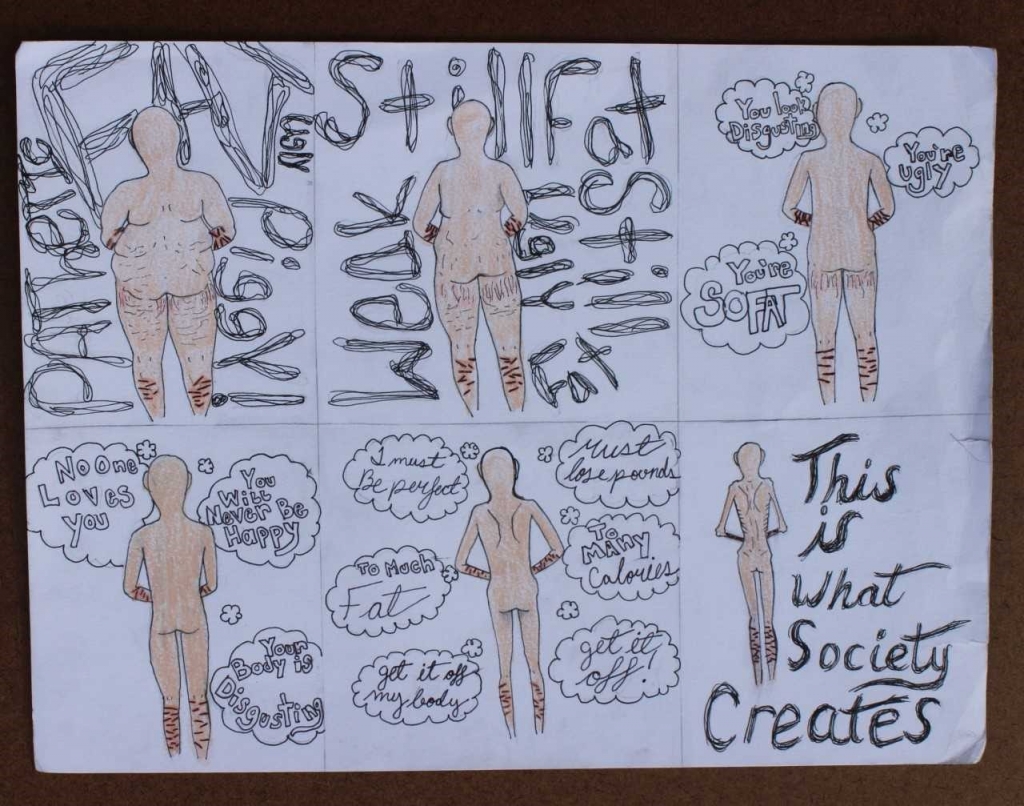 FAT
Pathetic
Ugly
Piggy!
Still Fat
Weak
Ugly
Fat
Still
You look
Disgusting
You're
ugly
You're
SO FAT
No One
Loves
you
You
Will
Never Be
Happy
Your
Body is
Disgusting
I must
Be perfect
Must
lose pounds
To Much
Fat
To
MANY
Calories
get it off
my body
get it
off!
This
is
What
Society
Creates